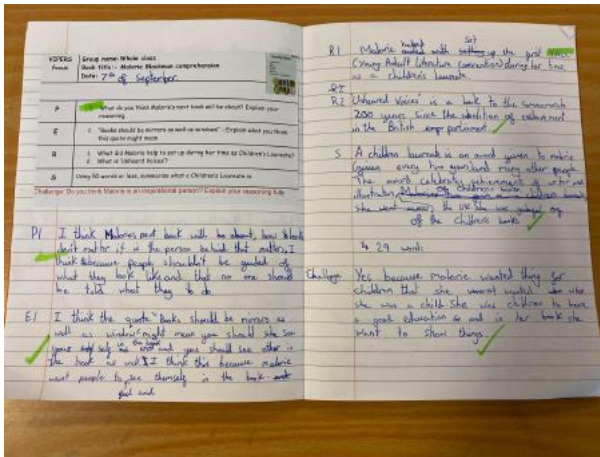 VIPERS Focus
Group name: Whole class
Book title:- Malorie Blackman comprehension
Date: 7th of September
P
What do you think Malorie's next book will be about? Explain your
reasoning
E
1. "Books should be mirrors as well as windows" - Explain what you think
this quote might mean
R
1. What did Malorie help to set up during her time as Children's Laureate?
2. What is Unheard Voices?
S
Using 50 words or less, summarise what a Children's Laureate is
Challenge: Do you think Malorie is an inspirational person? Explain your reasoning fully
P1 I think Malories next book will be about, how looks
don't matter if is the person behind that matters. I
think because people shouldn't be of
what they look like and that no one should
be told what they to do.
E1 I think the quote "Books should be mirrors as
well as windows" might mean you should
your self in the book and you should see other in
the book as well. I think this because malorie
want people to see themself in the book
and
R1 Malorie helped with set up the first
(Young Adult Literature convention) during her time
as a children's laureate
R2 Unheard Voices is a book to the
200 years since the abolition of
in the British parliament.
S A children laureate is an award given to malorie
every two years and many other people.
The award celebrate achievement of writer and
illustrators,
she went the UK. She was
of the childrens books.
29 words
Challenge Yes because malorie wanted thing for
children that she wanted when
she was a child. She was children to have
a good education and in her book she
want to show things.